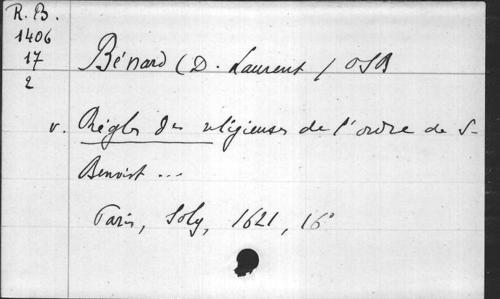 R. B.
1406
17
2
Bénard (D. Laurent) OSB
v. Règles des religieuses de l'ordre de S-
Benoist ...
Paris, Soly, 1621, 16°